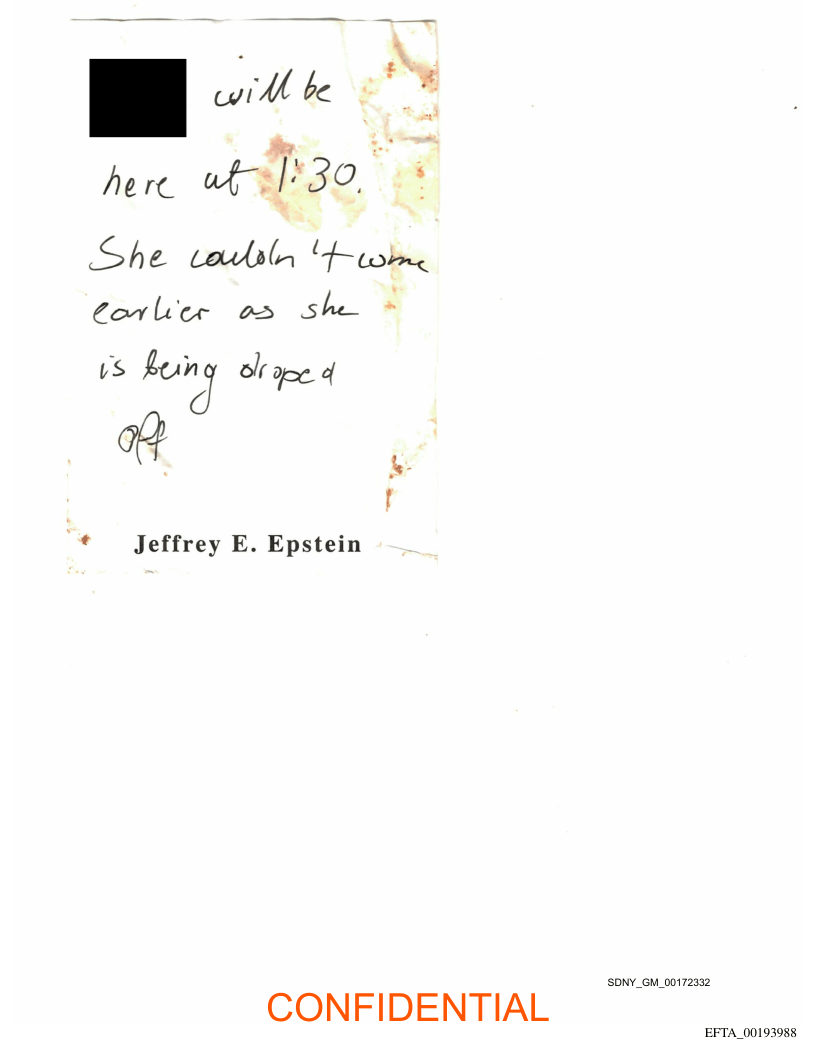 will be
here at 1:30.
She couldn't come
earlier as she
is being droped
off
Jeffrey E. Epstein
SDNY_GM_00172332
CONFIDENTIAL
EFTA_00193988